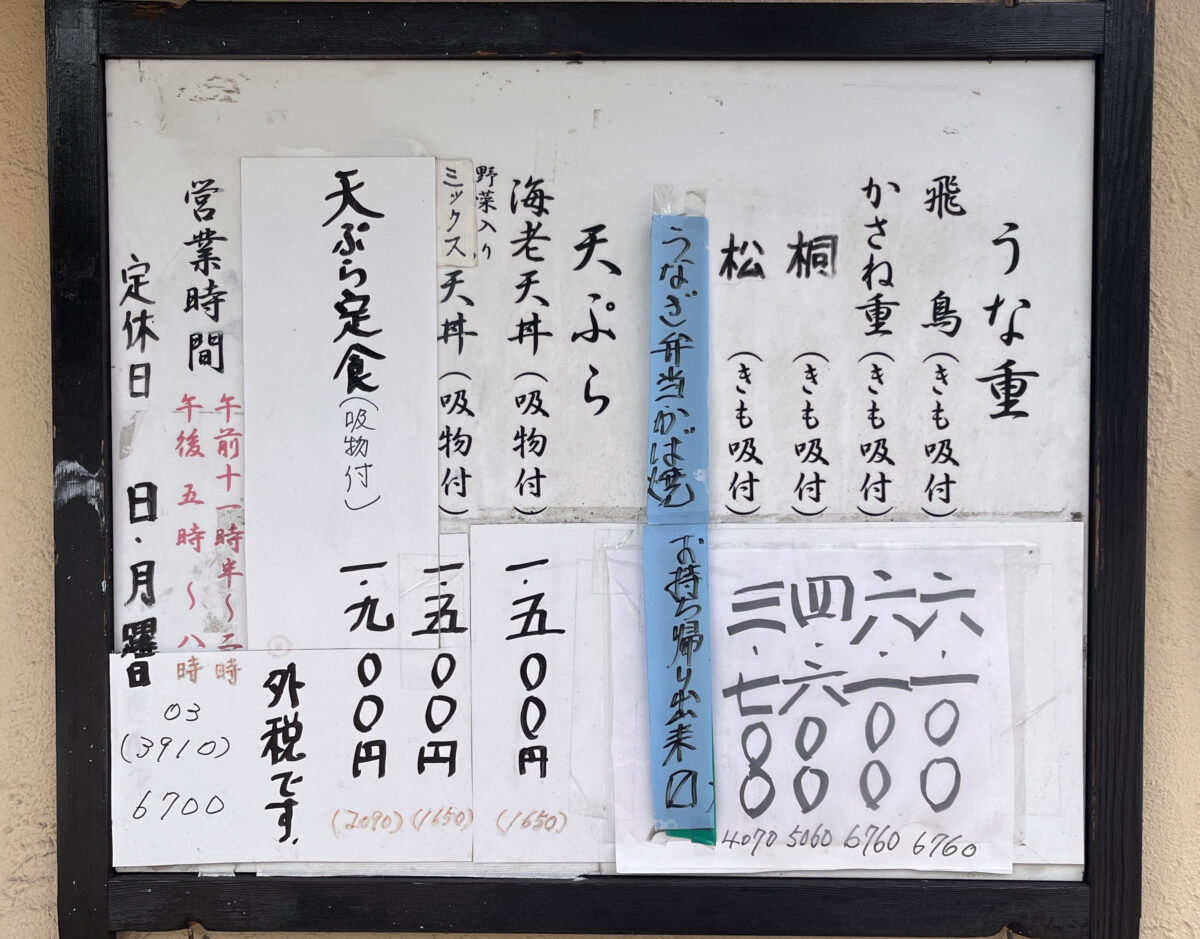 うな重
飛鳥(きも吸付) 六・一〇〇 6760
かさね重(きも吸付) 六・一〇〇 6760
桐(きも吸付) 四・六〇〇 5060
松(きも吸付) 三・七〇〇 4070
うなぎ弁当かば焼 お持ち帰り出来〼
天ぷら
海老天丼(吸物付) 一・五〇〇円 (1650)
野菜入り
ミックス天丼(吸物付) 一・五〇〇円 (1650)
天ぷら定食(吸物付) 一・九〇〇円 (2090)
外税です.
営業時間
午前十一時半〜二時
午後五時〜八時
定休日 日・月曜日
03
(3910)
6700